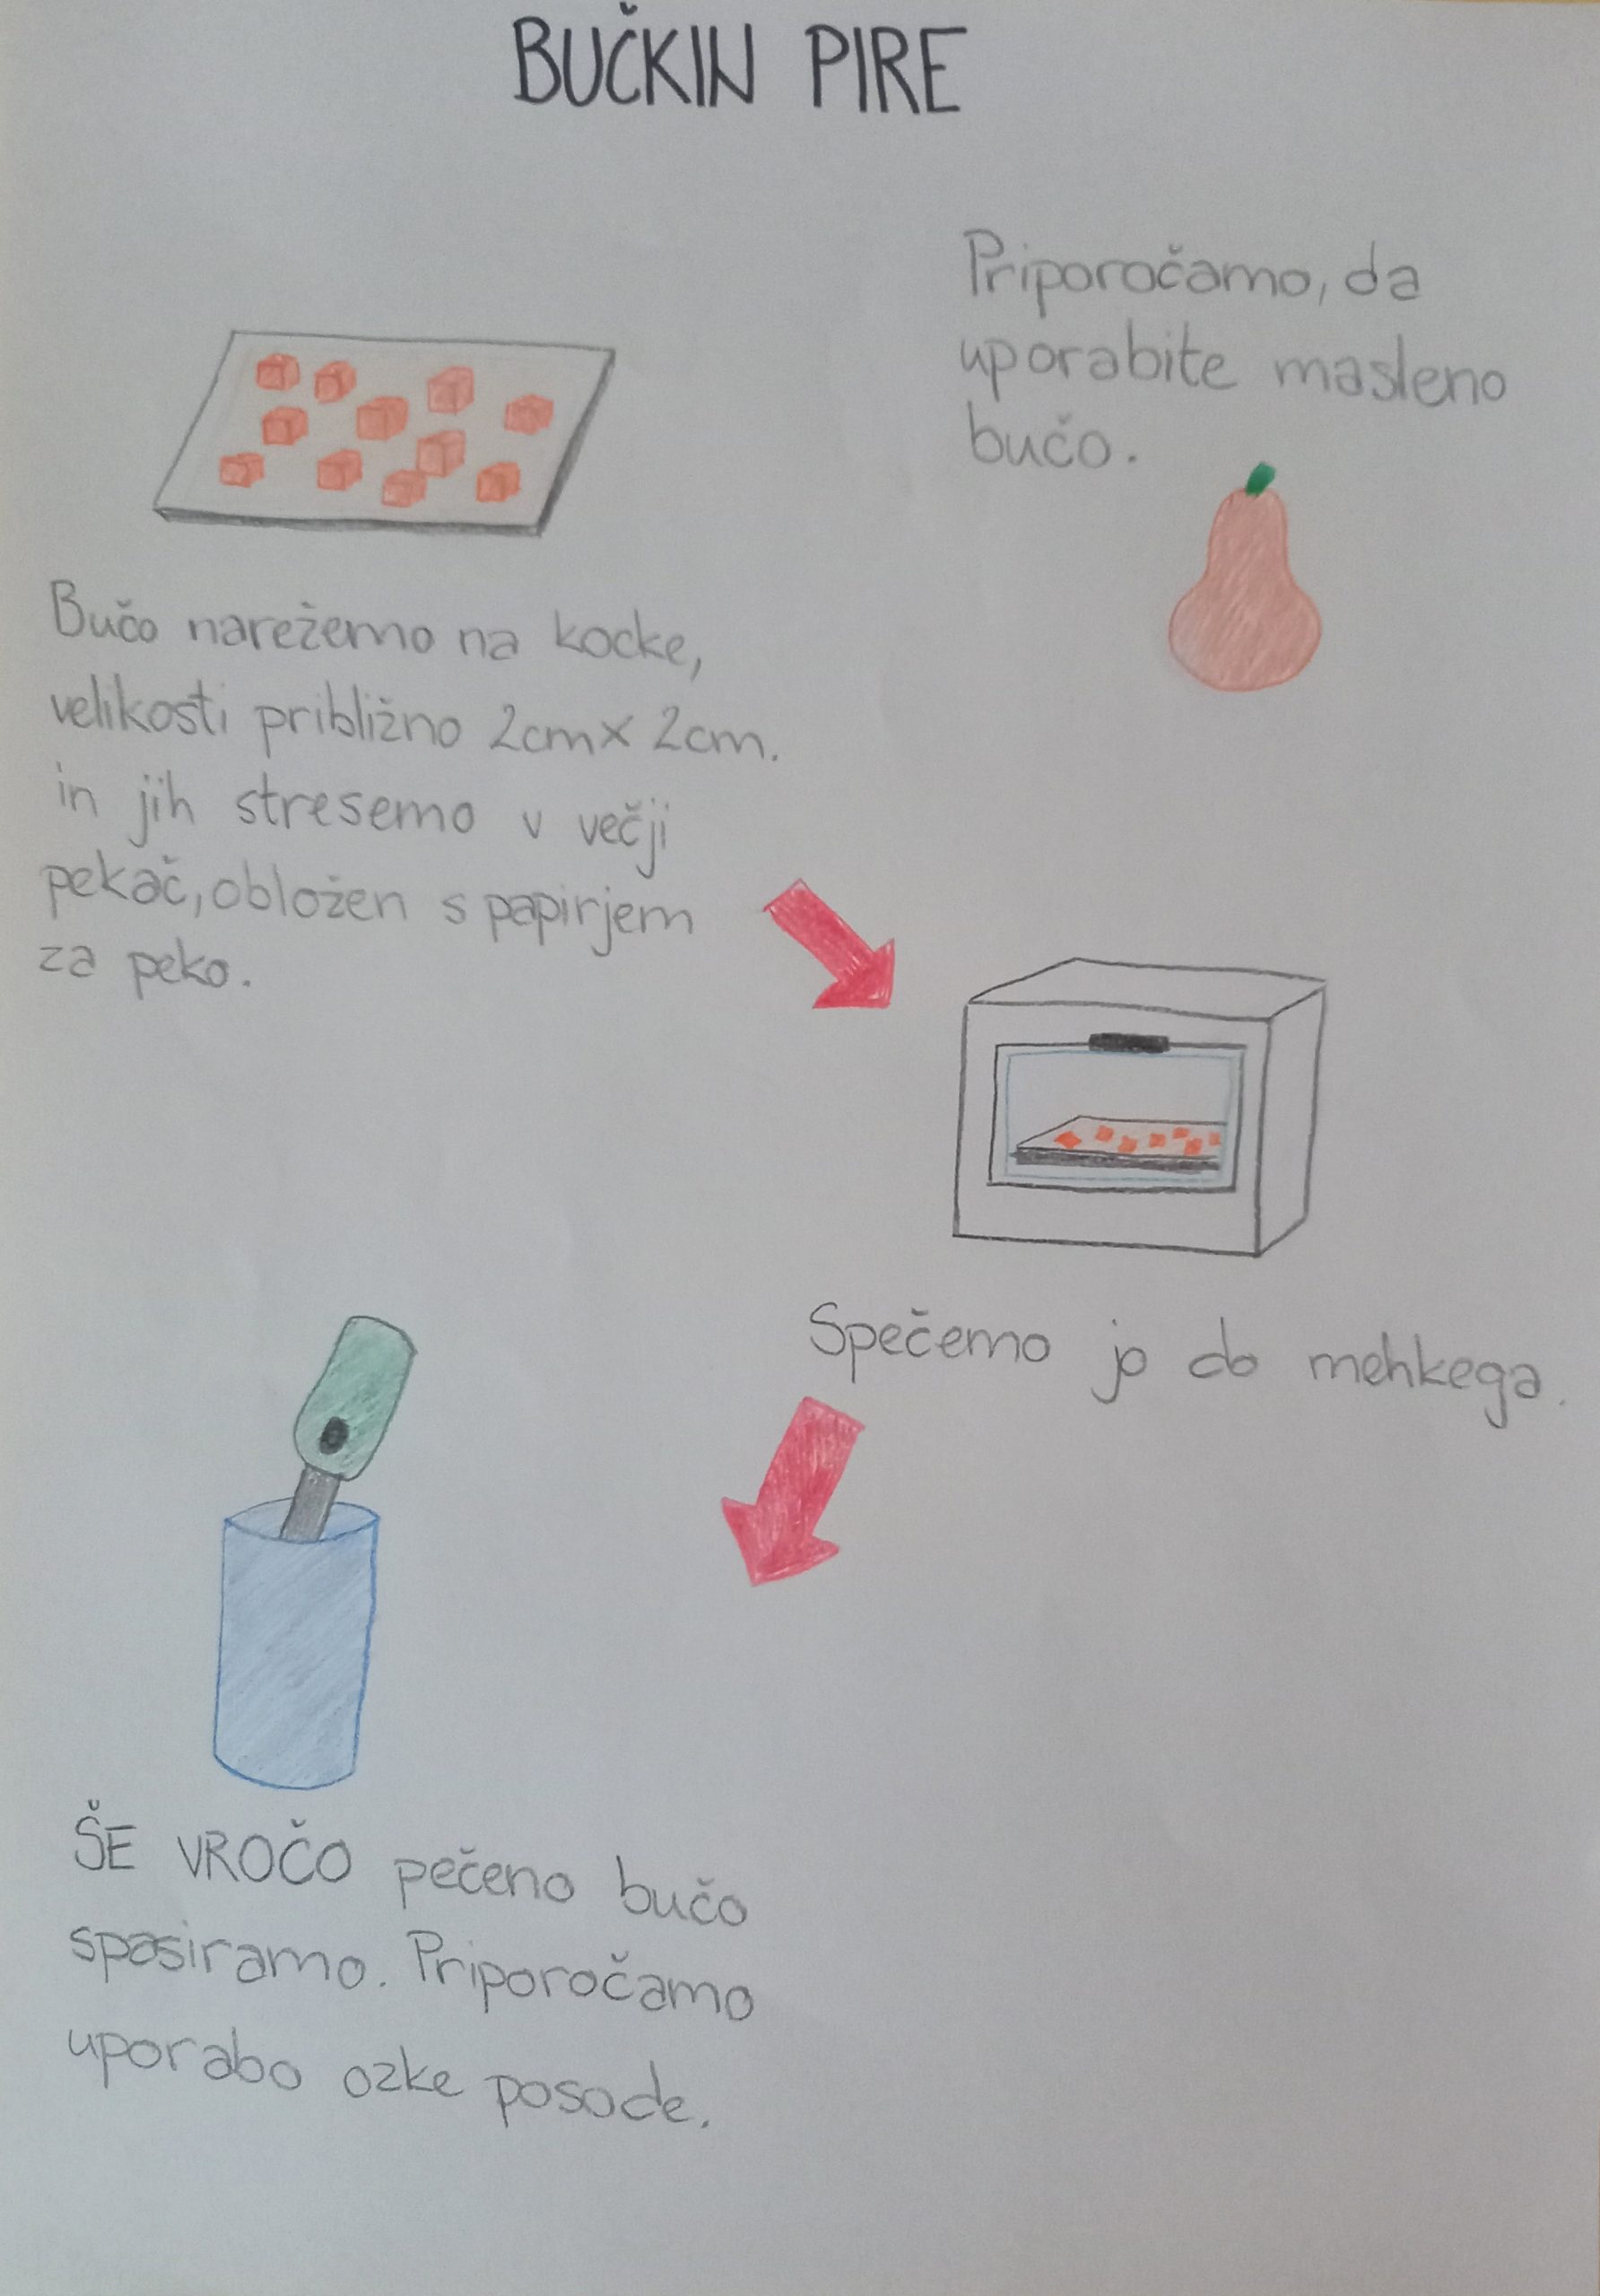 BUČKIN PIRE
Priporočamo, da
uporabite masleno
bučo.
Bučo narežemo na kocke,
velikosti približno 2cm x 2cm.
in jih stresemo v večji
pekač, obložen s papirjem
za peko.
Spečemo jo do mehkega.
ŠE VROČO pečeno bučo
spasiramo. Priporočamo
uporabo ozke posode.